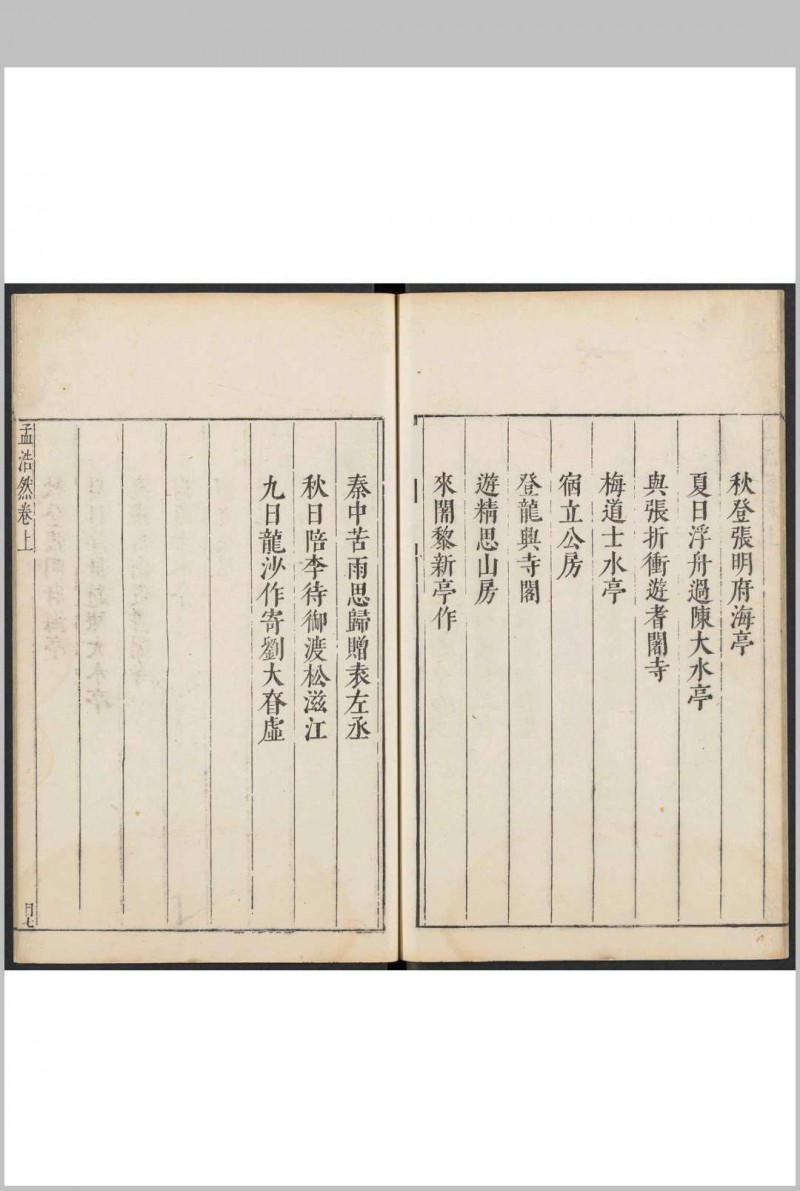 秋登張明府海亭
夏日浮舟過陳大水亭
與張折衝遊耆闍寺
梅道士水亭
宿立公房
登龍興寺閣
遊精思山房
來闍黎新亭作
秦中苦雨思歸贈袁左丞
秋日陪李侍御渡松滋江
九日龍沙作寄劉大眘虛
孟浩然卷上
目七